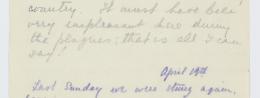 country. It must have been
very unpleasant here during
the plagues: that is all I can
say!
April 19th
Last Sunday we were stung again,